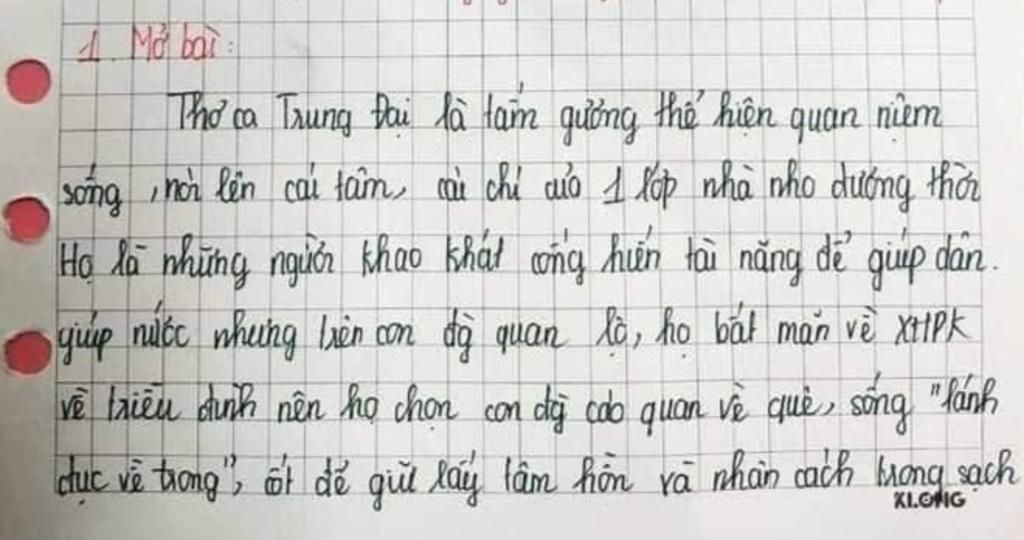 1. Mở bài:
Thơ ca Trung Đại là tấm gương thể hiện quan niệm
sống, nói lên cái tâm, cái chí của 1 lớp nhà nho đương thời
Họ là những người khao khát cống hiến tài năng để giúp dân.
giúp nước nhưng trên con đg quan lộ, họ bất mãn về XHPK
về triều đình nên họ chọn con đg cáo quan về quê, sống "lánh
đục về trong", cốt để giữ lấy tâm hồn và nhân cách trong sạch
KLONG